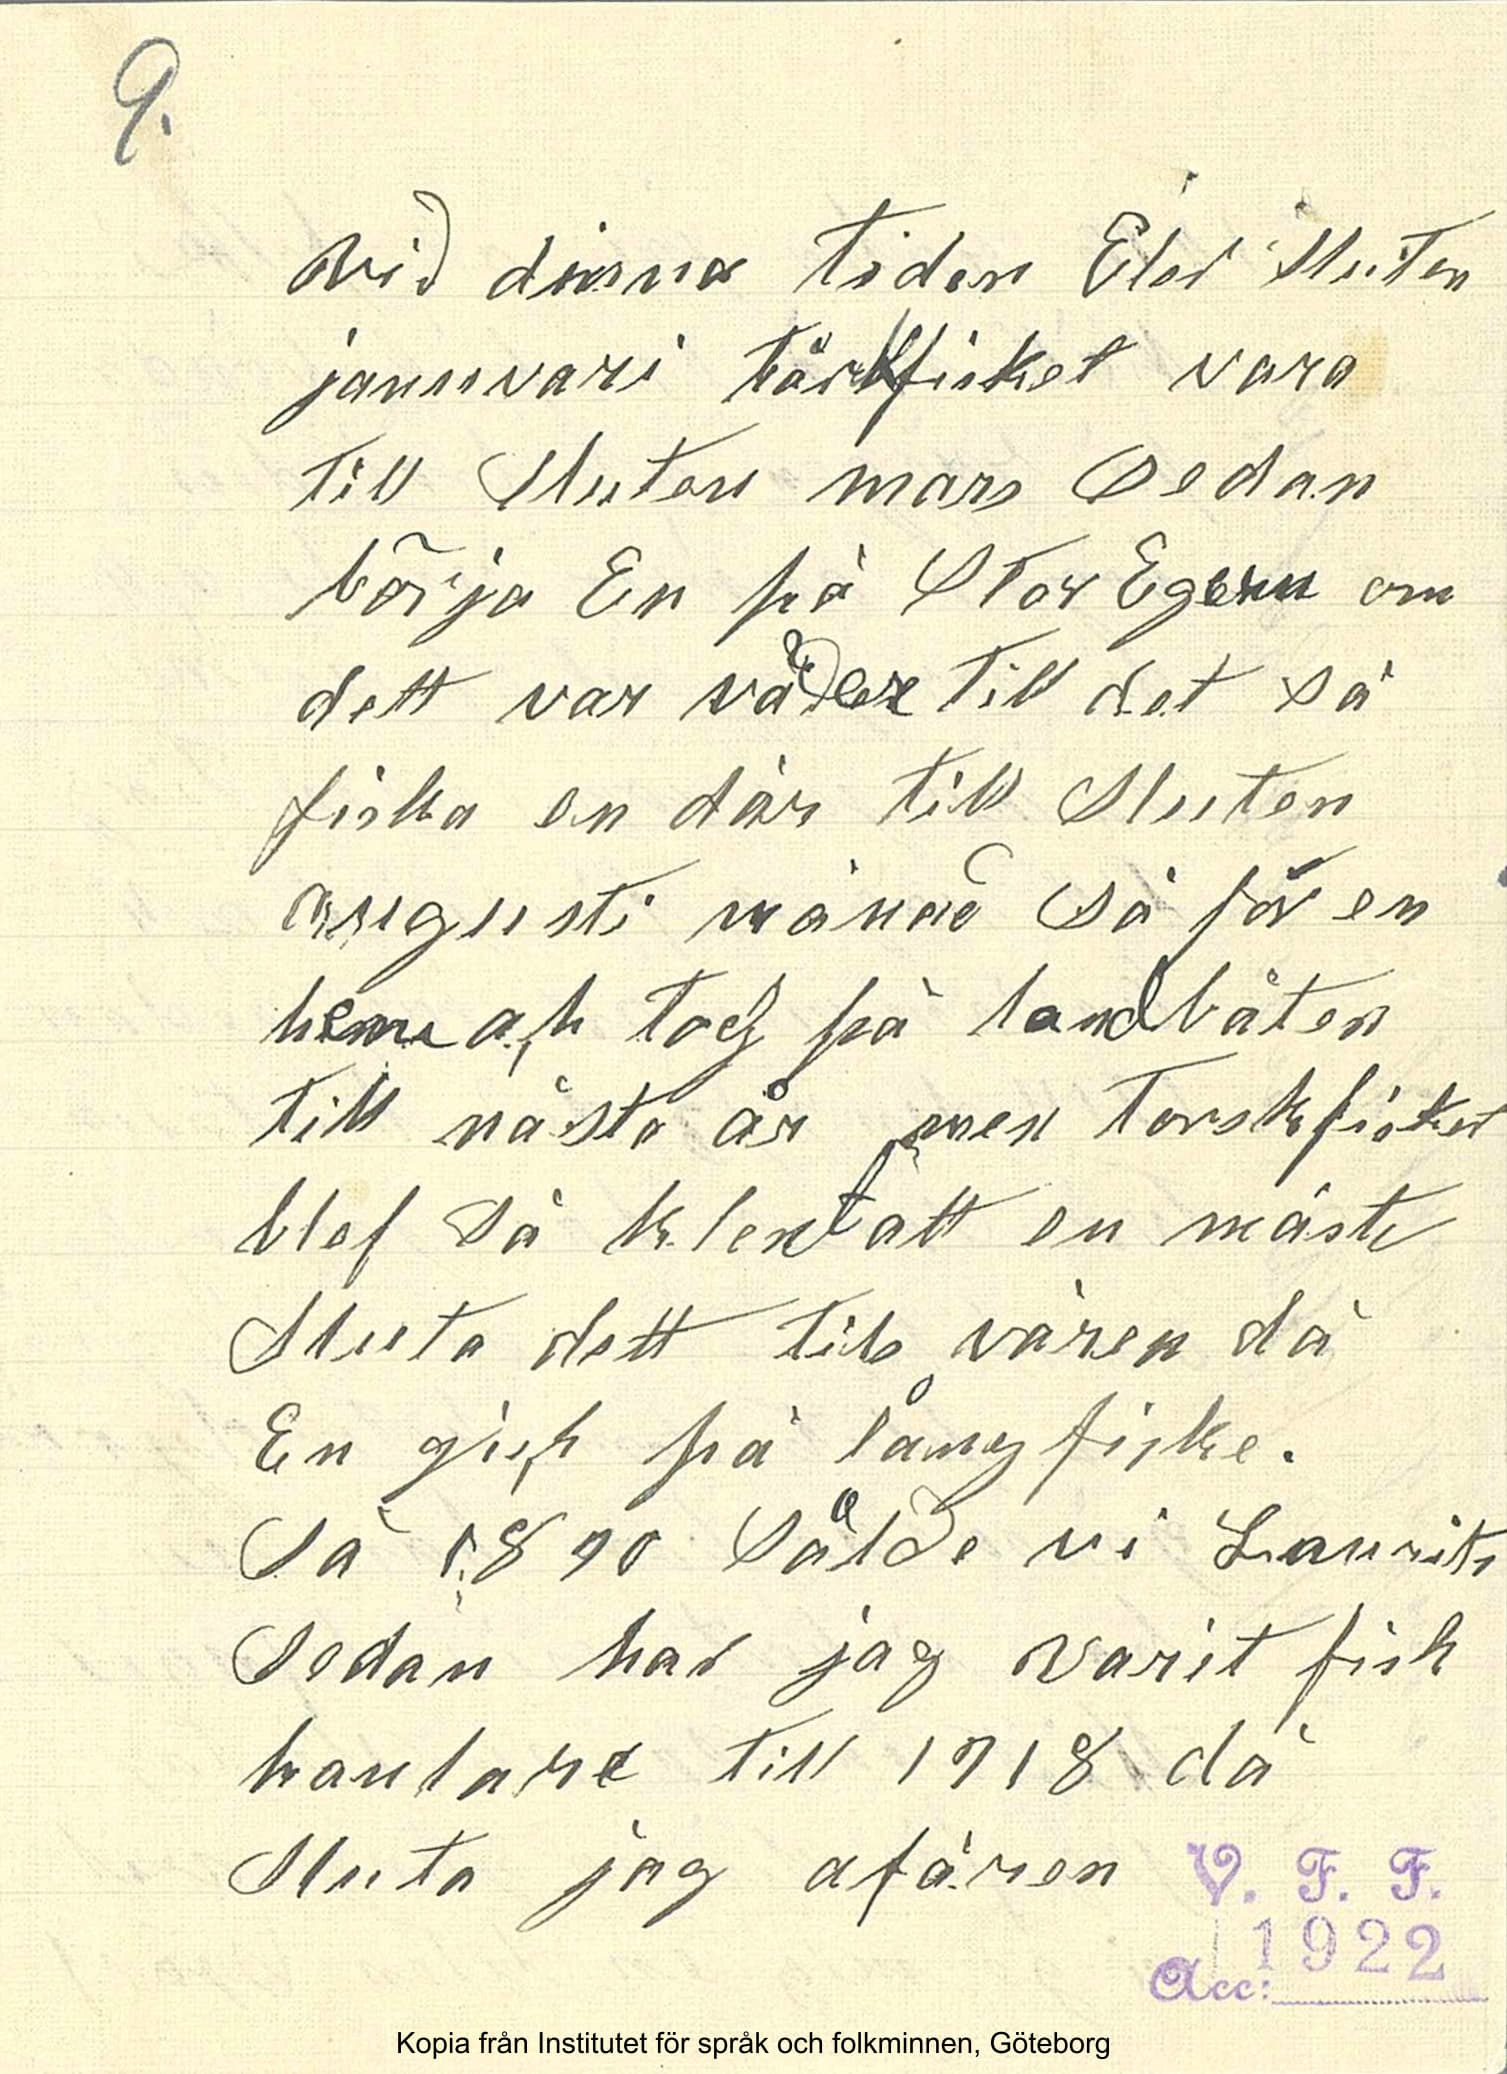 9.
vid dinna tiden Eler Sluten
jannuvari Törskfisket vara
till Sluten mars Sedan
börja En på Stor Egern om
dett var väder till det så
fiska en där till Sluten
augusti månad så for en
hem ock tog på landbåten
till nästa år men Torskfisket
blef så klent att en måste
Sluta dett till våren då
En gick på långfiske.
Så 1890 Sålde vi Laurits
Sedan har jag varit fisk
hanlare till 1918 då
Sluta jag afären
V. F. F.
Acc: 1922
Kopia från Institutet för språk och folkminnen, Göteborg